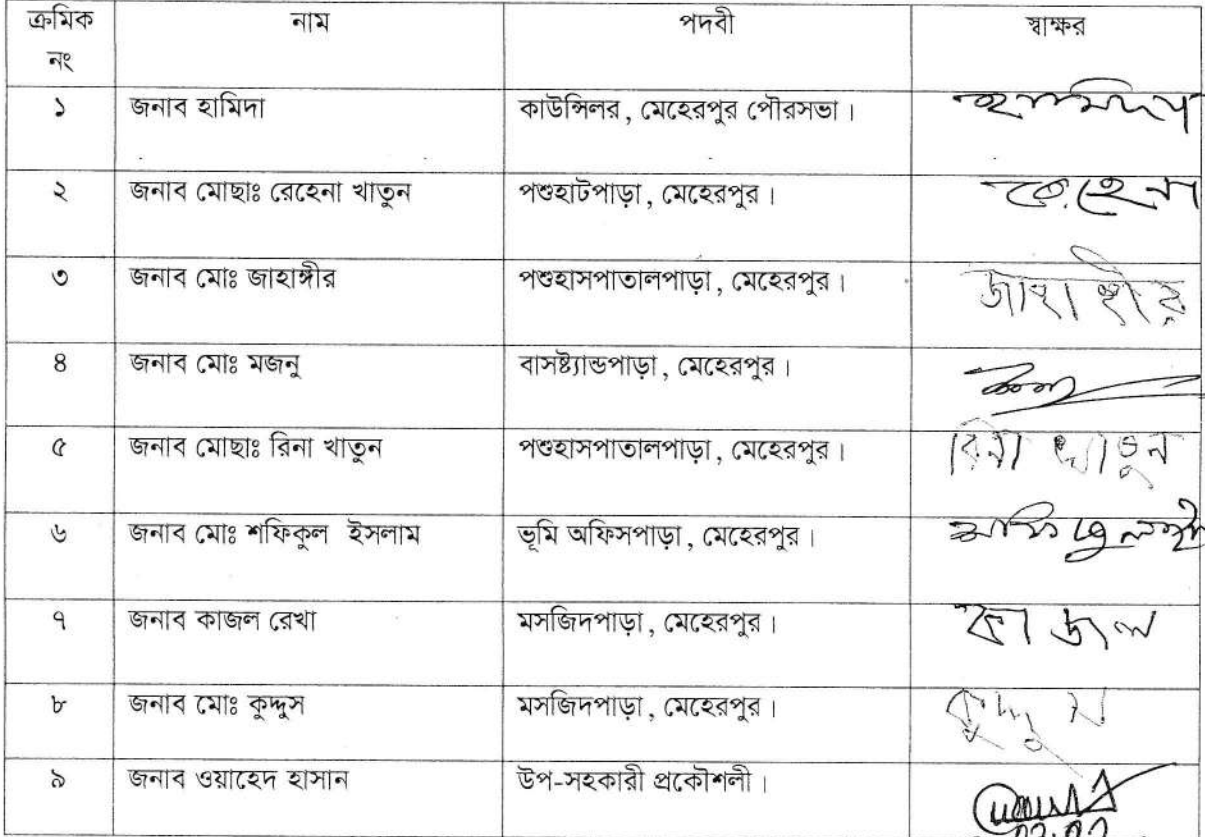 ক্রমিক নং	নাম	পদবী	স্বাক্ষর
১	জনাব হামিদা	কাউন্সিলর, মেহেরপুর পৌরসভা।	হামিদা
২	জনাব মোছাঃ রেহেনা খাতুন	পশুহাটপাড়া, মেহেরপুর।	রেহেনা
৩	জনাব মোঃ জাহাঙ্গীর	পশুহাসপাতালপাড়া, মেহেরপুর।	জাহাঙ্গীর
৪	জনাব মোঃ মজনু	বাসষ্ট্যান্ডপাড়া, মেহেরপুর।
৫	জনাব মোছাঃ রিনা খাতুন	পশুহাসপাতালপাড়া, মেহেরপুর।	রিনা খাতুন
৬	জনাব মোঃ শফিকুল ইসলাম	ভূমি অফিসপাড়া, মেহেরপুর।
৭	জনাব কাজল রেখা	মসজিদপাড়া, মেহেরপুর।	কাজল
৮	জনাব মোঃ কুদ্দুস	মসজিদপাড়া, মেহেরপুর।	কুদ্দুস
৯	জনাব ওয়াহেদ হাসান	উপ-সহকারী প্রকৌশলী।